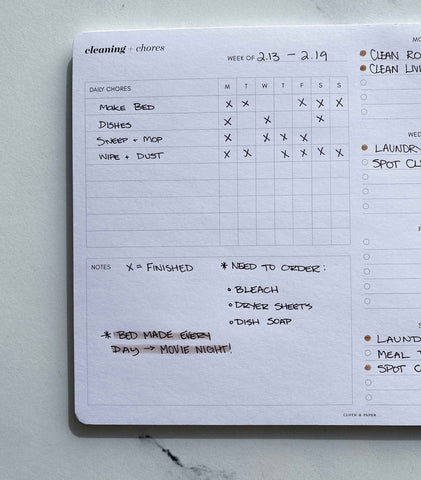 cleaning + chores
WEEK OF 2.13 - 2.19
DAILY CHORES M T W T F S S
MAKE BED X X X X X
DISHES X X X
SWEEP + MOP X X X X
WIPE + DUST X X X X X X
NOTES X = FINISHED
* NEED TO ORDER:
BLEACH
DRYER SHEETS
DISH SOAP
* BED MADE EVERY
DAY → MOVIE NIGHT!
CLOTH & PAPER
MO
CLEAN RO
CLEAN LIV
WED
LAUNDRY
SPOT CL
F
S
LAUND
MEAL
SPOT C